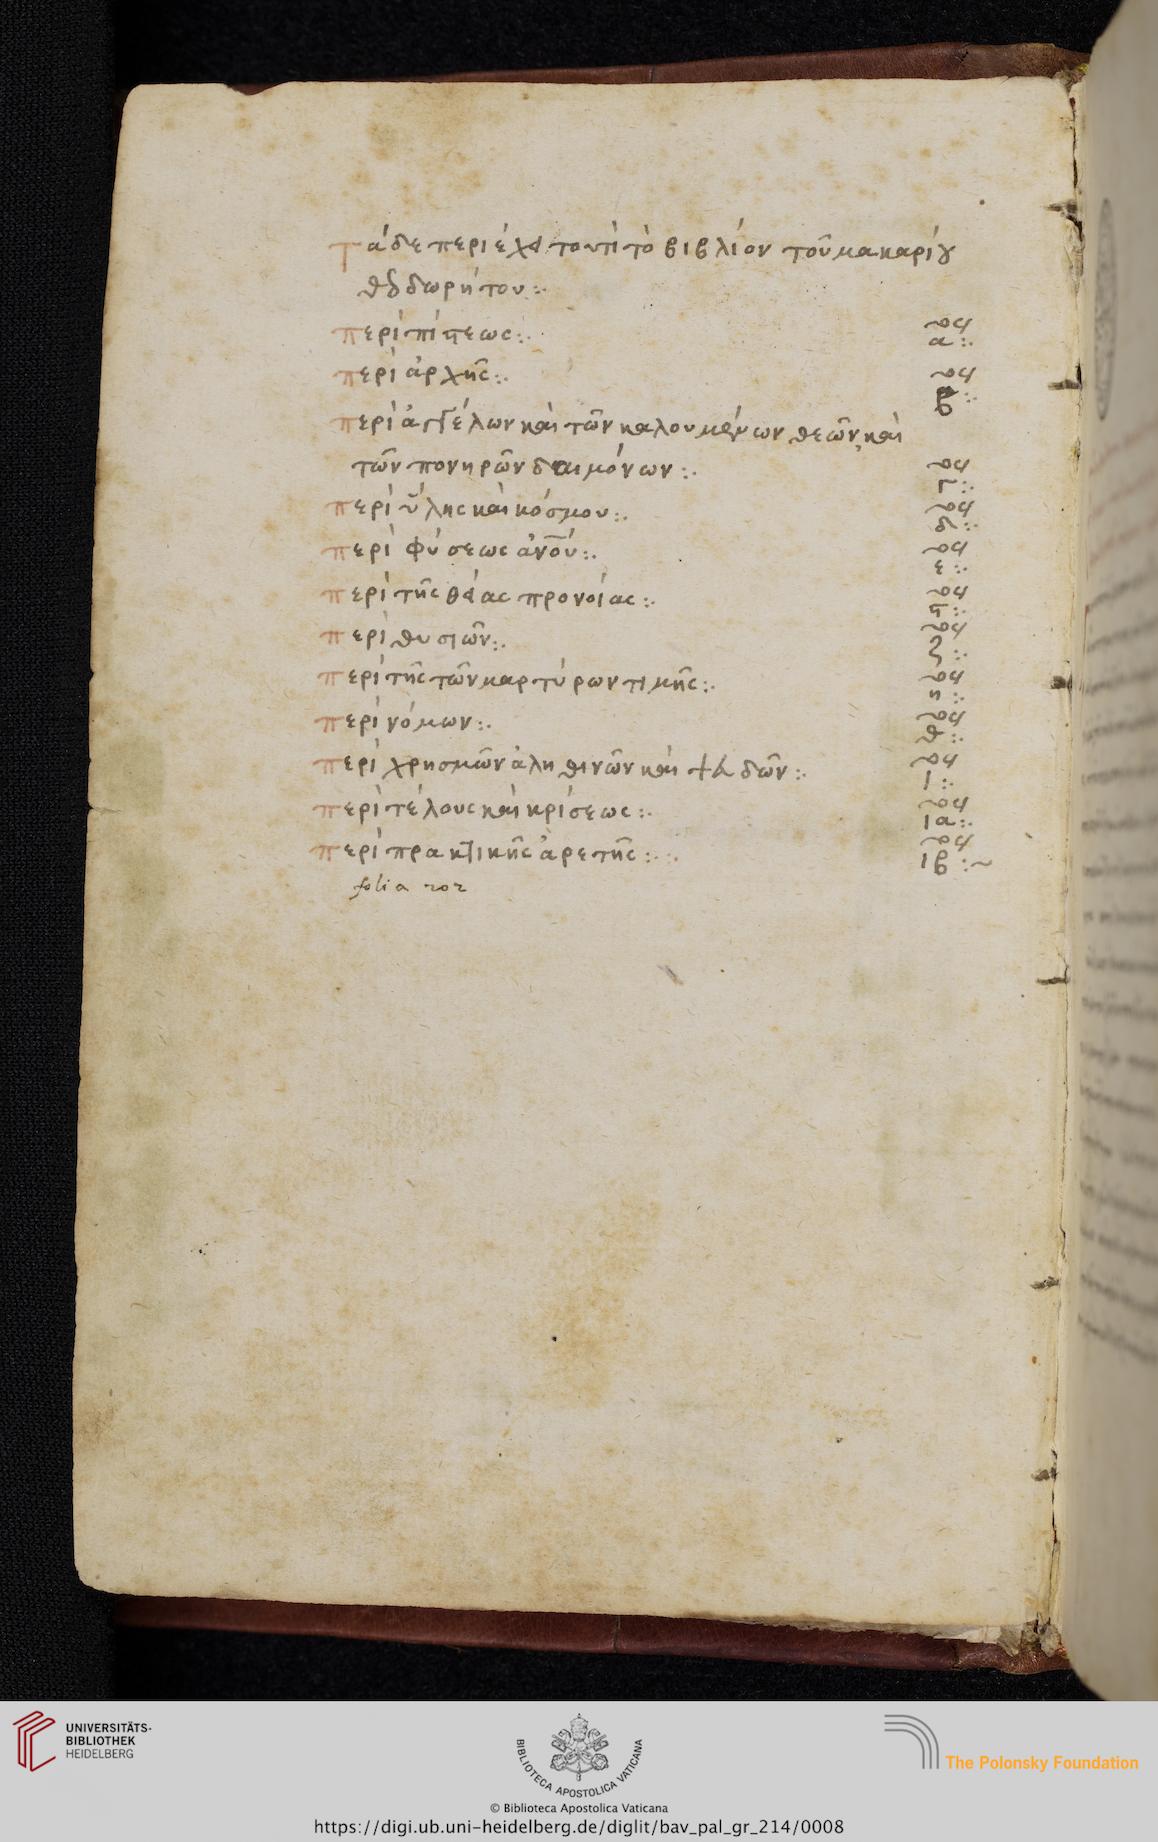 τάδε περιέχει τουτὶ τὸ βιβλίον τοῦ μακαρίου
θεοδωρήτου:.
περὶ πίστεως:. λογ α:.
περὶ ἀρχῆς:. λογ β:.
περὶ ἀγγέλων καὶ τῶν καλουμένων θεῶν, καὶ
τῶν πονηρῶν δαιμόνων:. λογ γ:.
περὶ ὕλης καὶ κόσμου:. λογ δ:.
περὶ φύσεως ἀνου:. λογ ε:.
περὶ τῆς θείας προνοίας:. λογ ϛ:.
περὶ θυσιῶν:. λογ ζ:.
περὶ τῆς τῶν μαρτύρων τιμῆς:. λογ η:.
περὶ νόμων:. λογ θ:.
περὶ χρησμῶν ἀληθινῶν καὶ ψευδῶν:. λογ ι:.
περὶ τέλους καὶ κρίσεως:. λογ ια:.
περὶ πρακτικῆς ἀρετῆς:. λογ ιβ:~
folia 202
UNIVERSITÄTS-
BIBLIOTHEK
HEIDELBERG
BIBLIOTECA APOSTOLICA VATICANA
The Polonsky Foundation
© Biblioteca Apostolica Vaticana
https://digi.ub.uni-heidelberg.de/diglit/bav_pal_gr_214/0008